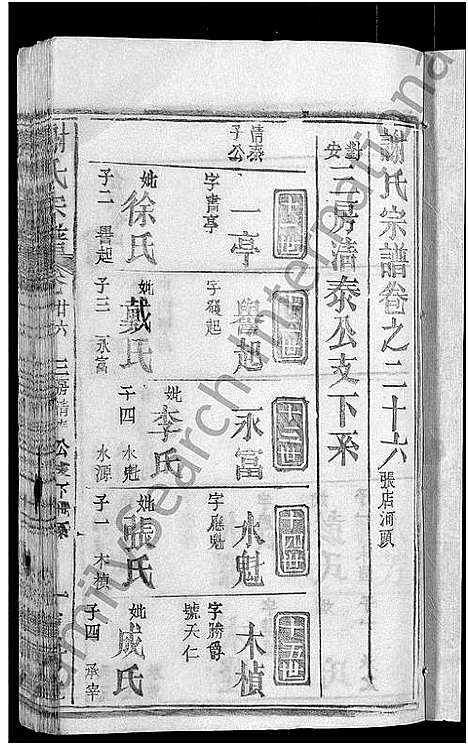 謝氏宗譜卷之二十六 張店河頭
對安 三房清泰公支下系
清泰公子
十一世
一亭
字肅亭
妣徐氏
子二 譽起
十二世
譽起
起
妣戴氏
子三 永富
十三世
永富
妣李氏
子四 水魁 水源
十四世
水魁
字應魁
妣張氏
子一 木楨
十五世
木楨
字勝爵
號天仁
妣成氏
子四 承宰
謝氏宗譜 卷廿六 三房清 公支下
FamilySearch International